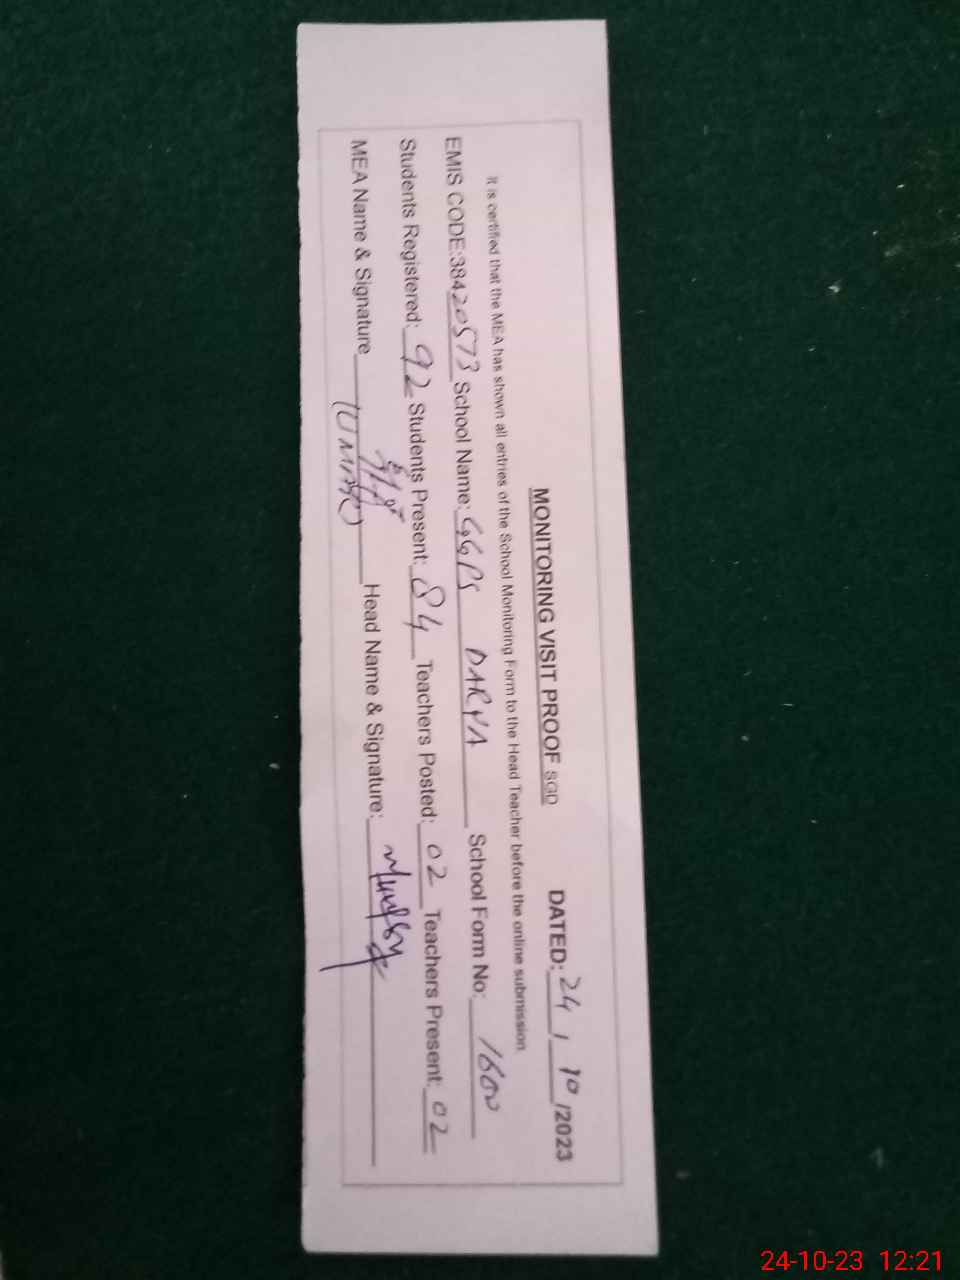 MONITORING VISIT PROOF SGD DATED: 24 / 10 /2023
It is certified that the MEA has shown all entries of the School Monitoring Form to the Head Teacher before the online submission
EMIS CODE:38420573 School Name: GGPS DARYA School Form No: 1600
Students Registered: 92 Students Present: 84 Teachers Posted: 02 Teachers Present: 02
MEA Name & Signature Head Name & Signature:
24-10-23 12:21